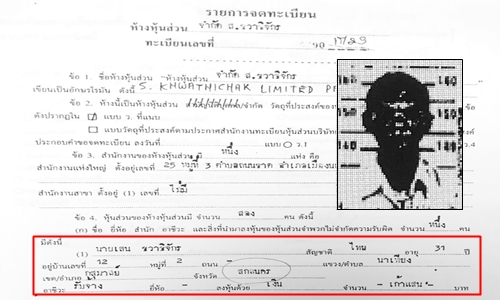 รายการจดทะเบียน
ห้างหุ้นส่วน จำกัด ส.รวาริจักร
ทะเบียนเลขที่
ข้อ 1. ชื่อห้างหุ้นส่วน "ห้างหุ้นส่วน จำกัด ส.รวาริจักร
เขียนเป็นอักษรโรมัน ดังนี้ S. KHWATHICHAK LIMITED
ข้อ 2. ห้างนี้เป็นห้างหุ้นส่วน จำกัด วัตถุที่ประสงค์ของ
ดังปรากฏใน แบบ ว. ที่แนบ
แบบวัตถุที่ประสงค์ตามประกาศสำนักงานทะเบียนหุ้นส่วนบริษัท
ประกอบคำขอจดทะเบียน ลงวันที่ แบบ ว.1
ข้อ 3. สำนักงานของห้างหุ้นส่วน มี หนึ่ง แห่ง คือ
สำนักงานแห่งใหญ่ ตั้งอยู่เลขที่ 25 หมู่ที่ 3 ตำบล อำเภอเมือง
สำนักงานสาขา ตั้งอยู่ (1) เลขที่ ไม่มี
ข้อ 4. หุ้นส่วนของห้างหุ้นส่วนมี จำนวน สอง คน ดังนี้
(ก) ชื่อ ยี่ห้อ สำนัก อาชีวะ และสิ่งที่นำมาลงหุ้นของหุ้นส่วนจำพวกไม่จำกัดความรับผิด จำนวน หนึ่ง
มีดังนี้
(1) นายเสน รวาริจักร สัญชาติ ไทย อายุ 31 ปี
อยู่บ้านเลขที่ 12 หมู่ที่ 2 ถนน - แขวง/ตำบล นาเพียง
เขต/อำเภอ กุสุมาลย์ จังหวัด สกลนคร
อาชีวะ รับจ้าง ยี่ห้อ - ลงหุ้นด้วย เงิน จำนวน - เก้าแสน - บาท
160 160
150 150
140